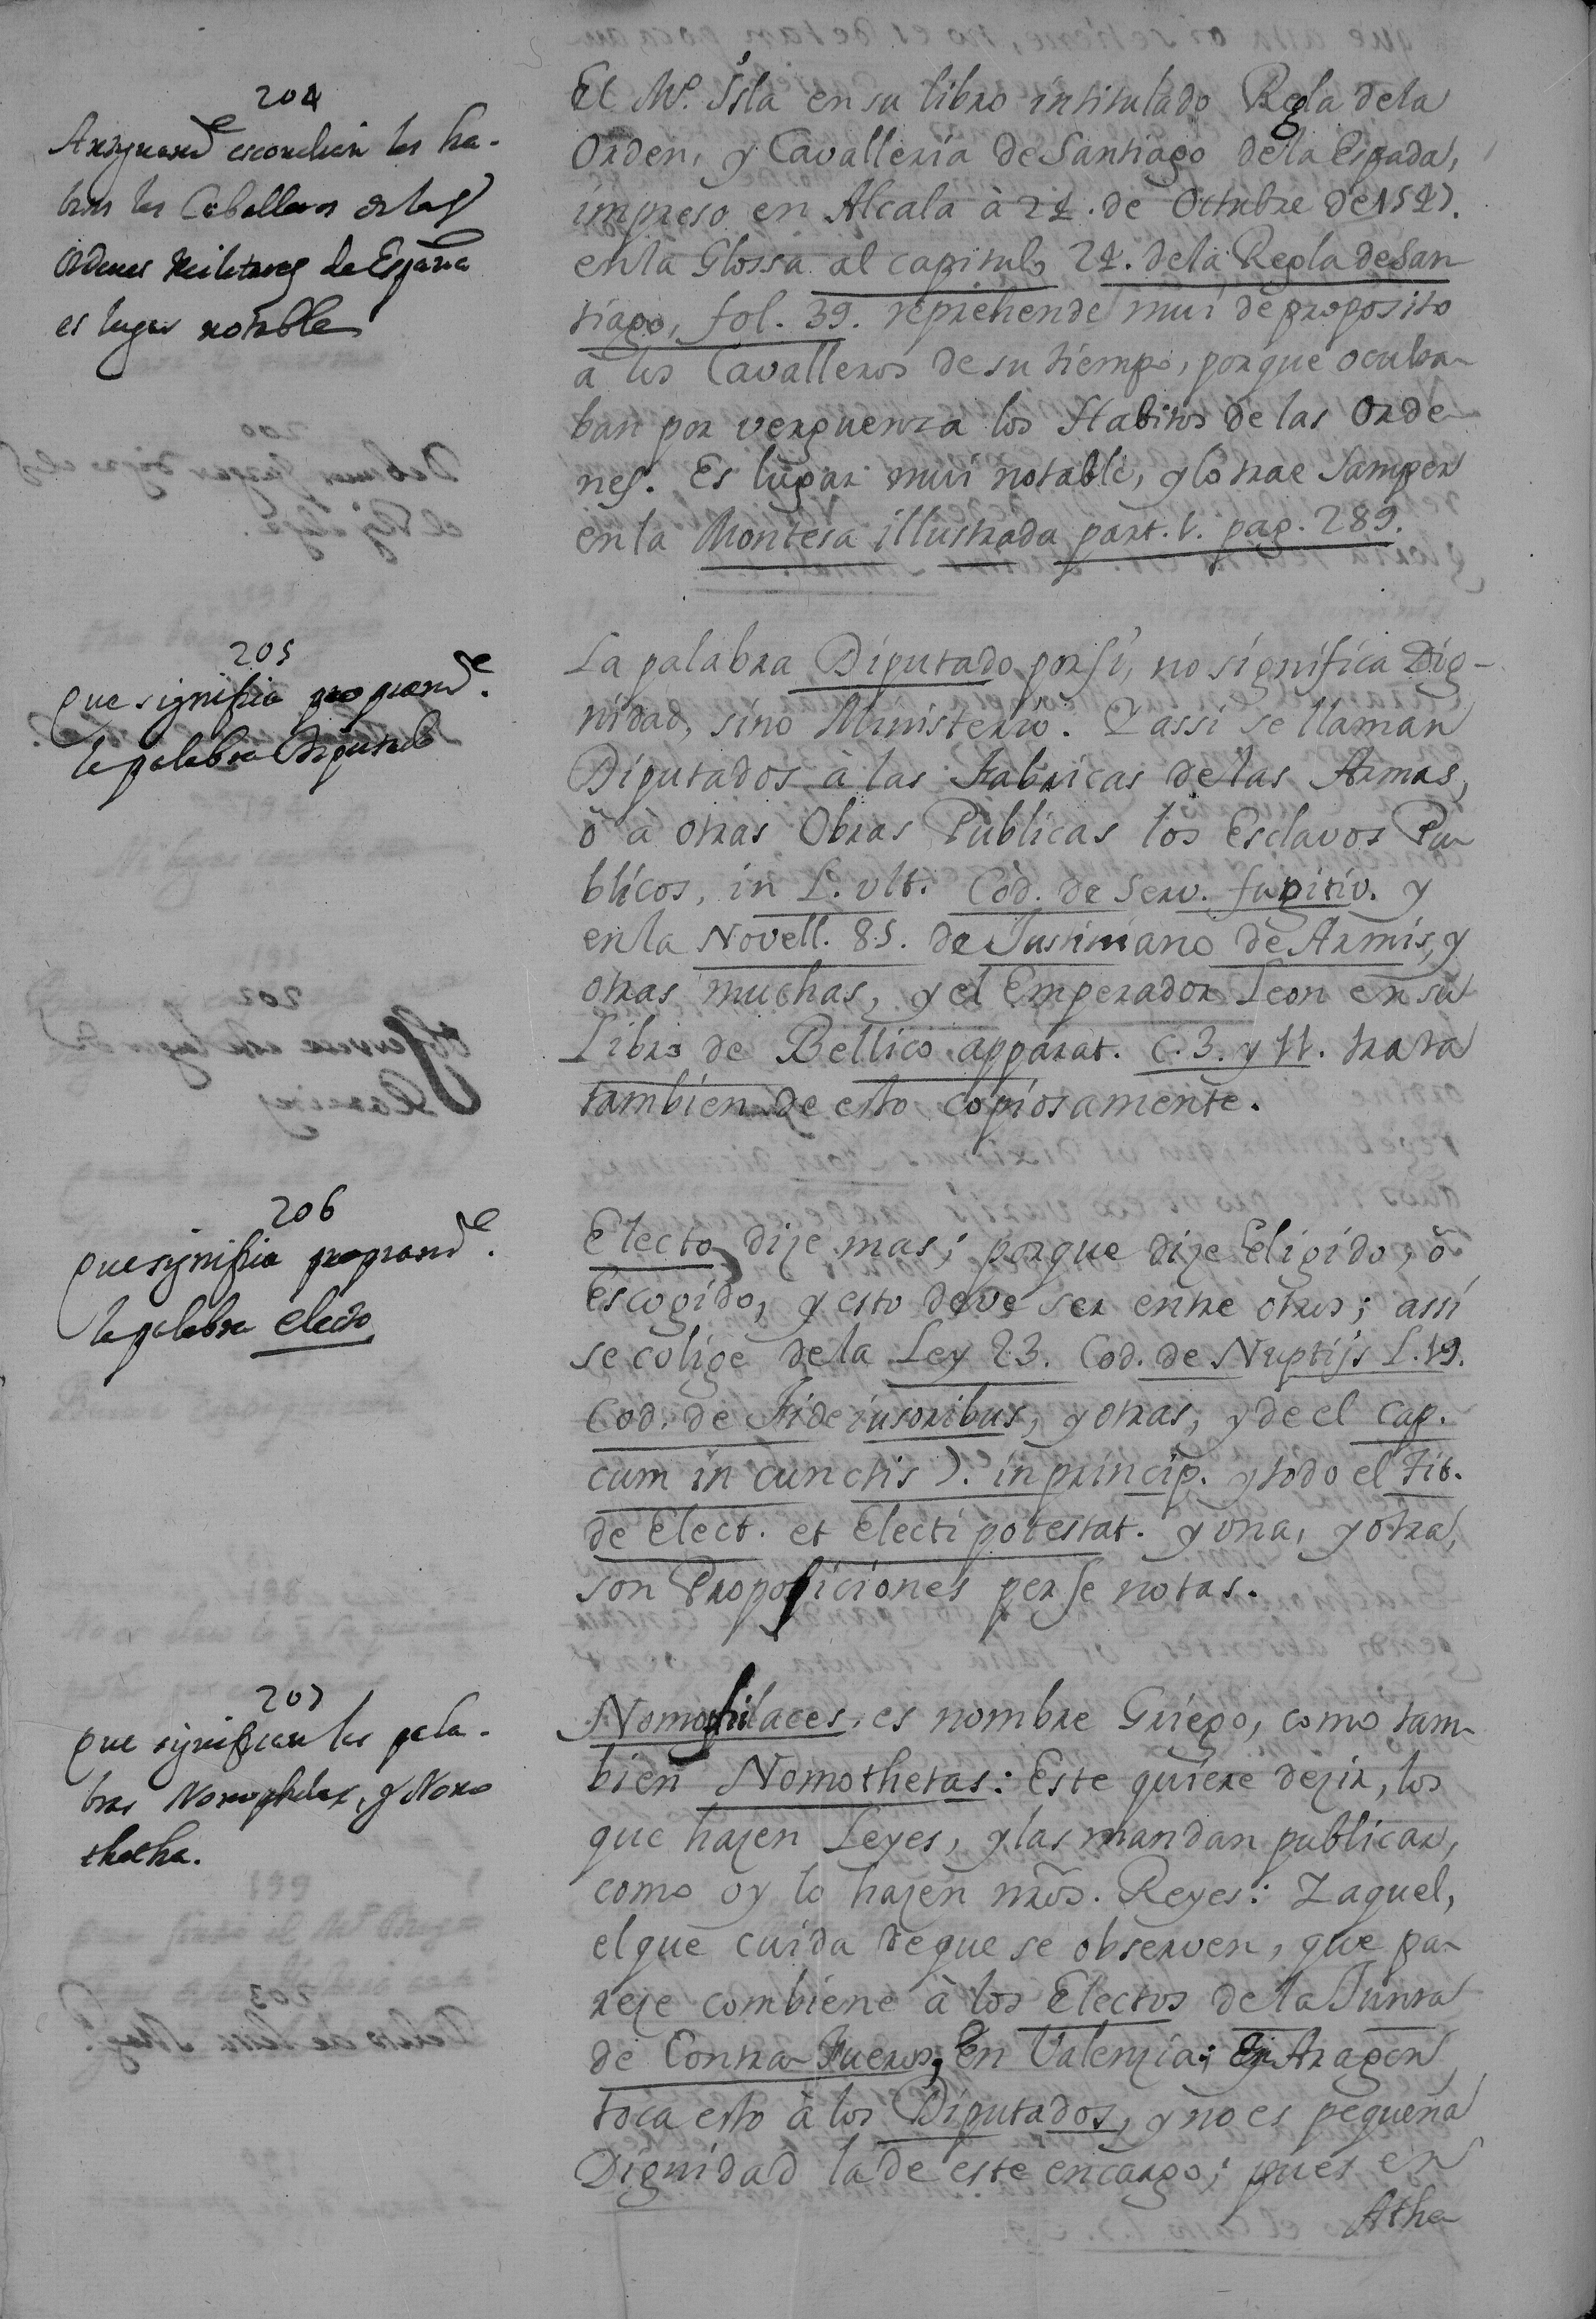 204
Antiguamte escondian los ha-
bitos los Caballeros de las
Ordenes Militares de España
es lugar notable
El Mo. Isla en su libro intitulado Regla dela
Orden, y Cavalleria de Santiago dela Espada,
impreso en Alcala à 24. de Octubre de 1547.
enla Glossa al capitulo 24. dela Regla de San
tiago, fol. 39. reprehende mui de proposito
à los Cavalleros de su tiempo, porque oculta-
ban por verguenza los Habitos de las Orde-
nes. Es lugar mui notable, y lo trae Samper
en la Montesa illustrada part. 1. pag. 289.
205
que signifia propriamte.
la palabra Diputado
La palabra Diputado por si, no significa Dig-
nidad, sino Ministerio. Y assi se llaman
Diputados à las Fabricas de las Armas,
ò à otras Obras Publicas los Esclavos Pu-
blicos, in L. vlt. Cod. de Serv. fugitiv. y
en la Novell. 85. de Justiniano de Armis, y
otras muchas, y el Emperador Leon en su
Libro de Bellico apparat. C. 3. y 11. trata
tambien de esto copiosamente.
206
que signifia propriamte.
la palabra electo
Electo dize mas; porque dize Eligido, ò
Escogido, y esto deve ser entre otros; assi
se colige dela Ley 23. Cod. de Nuptijs L. 19.
Cod. de Fideiusoribus, y otras, y de el cap.
cum in cunctis 7. in princip. y todo el Tit.
de Elect. et Electi potestat. y una, y otra,
son Proposiciones per se notas.
207
que significan las pala-
bras Nomophilax, y Nomo
thetha.
Nomofilaces, es nombre Griego, como tam-
bien Nomothetas: Este quiere dezir, los
que hazen Leyes, y las mandan publicar,
como oy lo hazen nros. Reyes: Y aquel,
el que cuida de que se observen, que pa-
reze combiene à los Electos de la Junta
de Contra-Fueros; En Valenzia; En Aragon
toca esto à los Diputados, y no es pequeña
Dignidad la de este encargo; pues en
Athe-